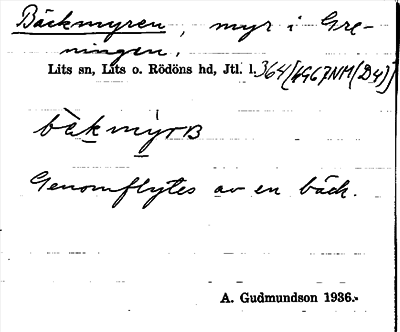 Bäckmyren, myr i Gre-
ningen.
Lits sn, Lits o. Rödöns hd, Jtl. l. 364 [6967NM(D4)]
bäkmyrʙ
Genomflytes av en bäck.
A. Gudmundson 1936.